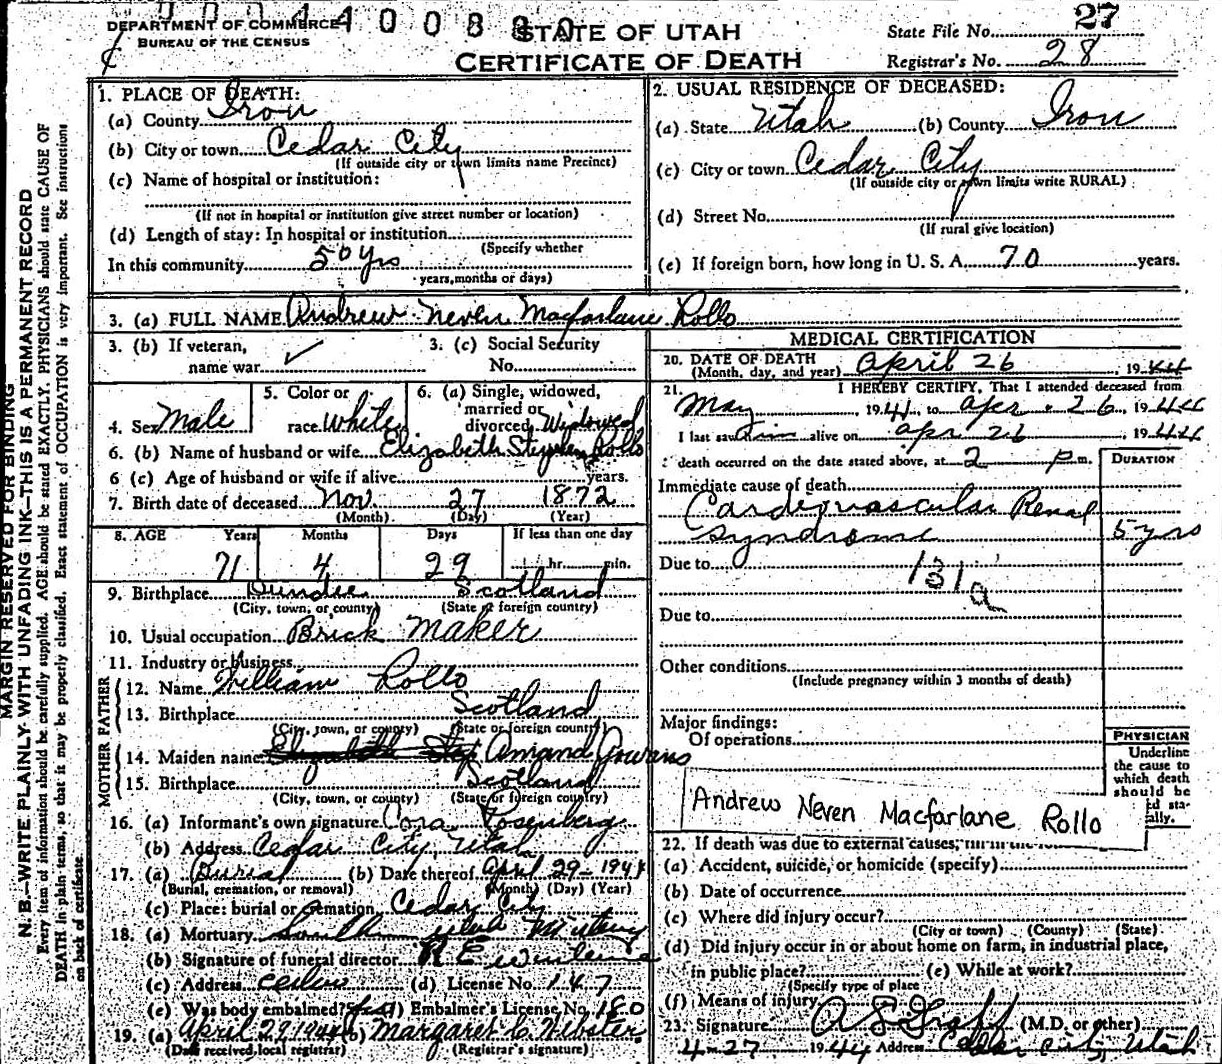 DEPARTMENT OF COMMERCE
BUREAU OF THE CENSUS
STATE OF UTAH
CERTIFICATE OF DEATH
State File No. 27
Registrar's No. 28
MARGIN RESERVED FOR BINDING
N. B.—WRITE PLAINLY WITH UNFADING INK—THIS IS A PERMANENT RECORD
Every item of information should be carefully supplied. AGE should be stated EXACTLY. PHYSICIANS should state CAUSE OF
DEATH in plain terms, so that it may be properly classified. Exact statement of OCCUPATION is very important. See instructions
on back of certificate.
1. PLACE OF DEATH:
(a) County Iron
(b) City or town Cedar City
(If outside city or town limits name Precinct)
(c) Name of hospital or institution:
(If not in hospital or institution give street number or location)
(d) Length of stay: In hospital or institution
(Specify whether
In this community 50 yrs
years, months or days)
2. USUAL RESIDENCE OF DECEASED:
(a) State Utah (b) County Iron
(c) City or town Cedar City
(If outside city or town limits write RURAL)
(d) Street No.
(If rural give location)
(e) If foreign born, how long in U. S. A. 70 years.
3. (a) FULL NAME Andrew Neven Macfarlane Rollo
3. (b) If veteran,
name war ✓
3. (c) Social Security
No.
4. Sex Male
5. Color or
race White
6. (a) Single, widowed,
married or
divorced Widowed
6. (b) Name of husband or wife Elizabeth Stephen Rollo
6 (c) Age of husband or wife if alive years.
7. Birth date of deceased Nov. 27 1872
(Month) (Day) (Year)
8. AGE Years Months Days If less than one day
71 4 29 hr. min.
9. Birthplace Dundee Scotland
(City, town, or county) (State or foreign country)
10. Usual occupation Brick Maker
11. Industry or business
FATHER
12. Name William Rollo
13. Birthplace Scotland
(City, town, or county) (State or foreign country)
MOTHER
14. Maiden name Elizabeth Step Amand Gowans
15. Birthplace Scotland
(City, town, or county) (State or foreign country)
16. (a) Informant's own signature Cora Rosenberg
(b) Address Cedar City, Utah
17. (a) Burial (b) Date thereof April 29-1944
(Burial, cremation, or removal) (Month) (Day) (Year)
(c) Place: burial or cremation Cedar City
18. (a) Mortuary South Utah
(b) Signature of funeral director R E
(c) Address Cedar (d) License No. 147
(e) Was body embalmed? yes (f) Embalmer's License No. 180
19. (a) April 29, 1944 (b) Margaret C. Webster
(Date received local registrar) (Registrar's signature)
MEDICAL CERTIFICATION
20. DATE OF DEATH April 26, 1944
(Month, day, and year)
21. I HEREBY CERTIFY, That I attended deceased from
May, 1941, to Apr. 26, 1944
I last saw him alive on Apr 26, 1944
death occurred on the date stated above, at 2 p.m.
DURATION
Immediate cause of death
Cardiovascular Renal
Syndrome 5 yrs
Due to 131a
Due to
Other conditions
(Include pregnancy within 3 months of death)
Major findings:
Of operations
PHYSICIAN
Underline
the cause to
which death
should be
ed sta-
ally.
Andrew Neven Macfarlane Rollo
22. If death was due to external causes,
(a) Accident, suicide, or homicide (specify)
(b) Date of occurrence
(c) Where did injury occur?
(City or town) (County) (State)
(d) Did injury occur in or about home on farm, in industrial place,
in public place? (e) While at work?
(Specify type of place
(f) Means of injury
23. Signature A L Graff (M.D. or other)
4-27 1944 Address Cedar City Utah